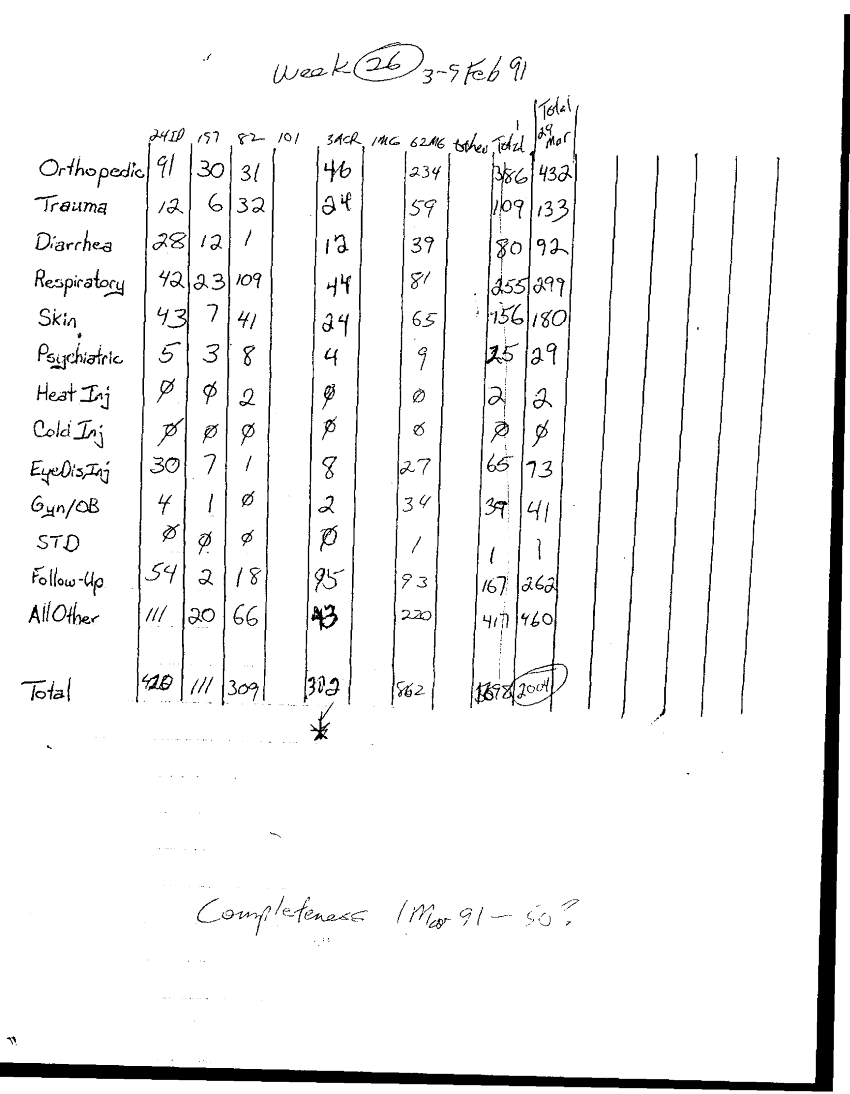 Week 26 3-9 Feb 91
Total
29
Mar
24ID 197 82 101 3ACR 1MG 62MG Other Total
Orthopedic 91 30 31 46 234 386 432
Trauma 12 6 32 24 59 109 133
Diarrhea 28 12 1 12 39 80 92
Respiratory 42 23 109 44 81 255 299
Skin 43 7 41 24 65 156 180
Psychiatric 5 3 8 4 9 25 29
Heat Inj Ø Ø 2 Ø Ø 2 2
Cold Inj Ø Ø Ø Ø Ø Ø Ø
EyeDis,Inj 30 7 1 8 27 65 73
Gyn/OB 4 1 Ø 2 34 39 41
STD Ø Ø Ø Ø 1 1 1
Follow-Up 54 2 18 95 93 167 262
All Other 111 20 66 43 220 417 460
Total 420 111 309 302 862 2004
*
Completeness 1 Mar 91 - 50?